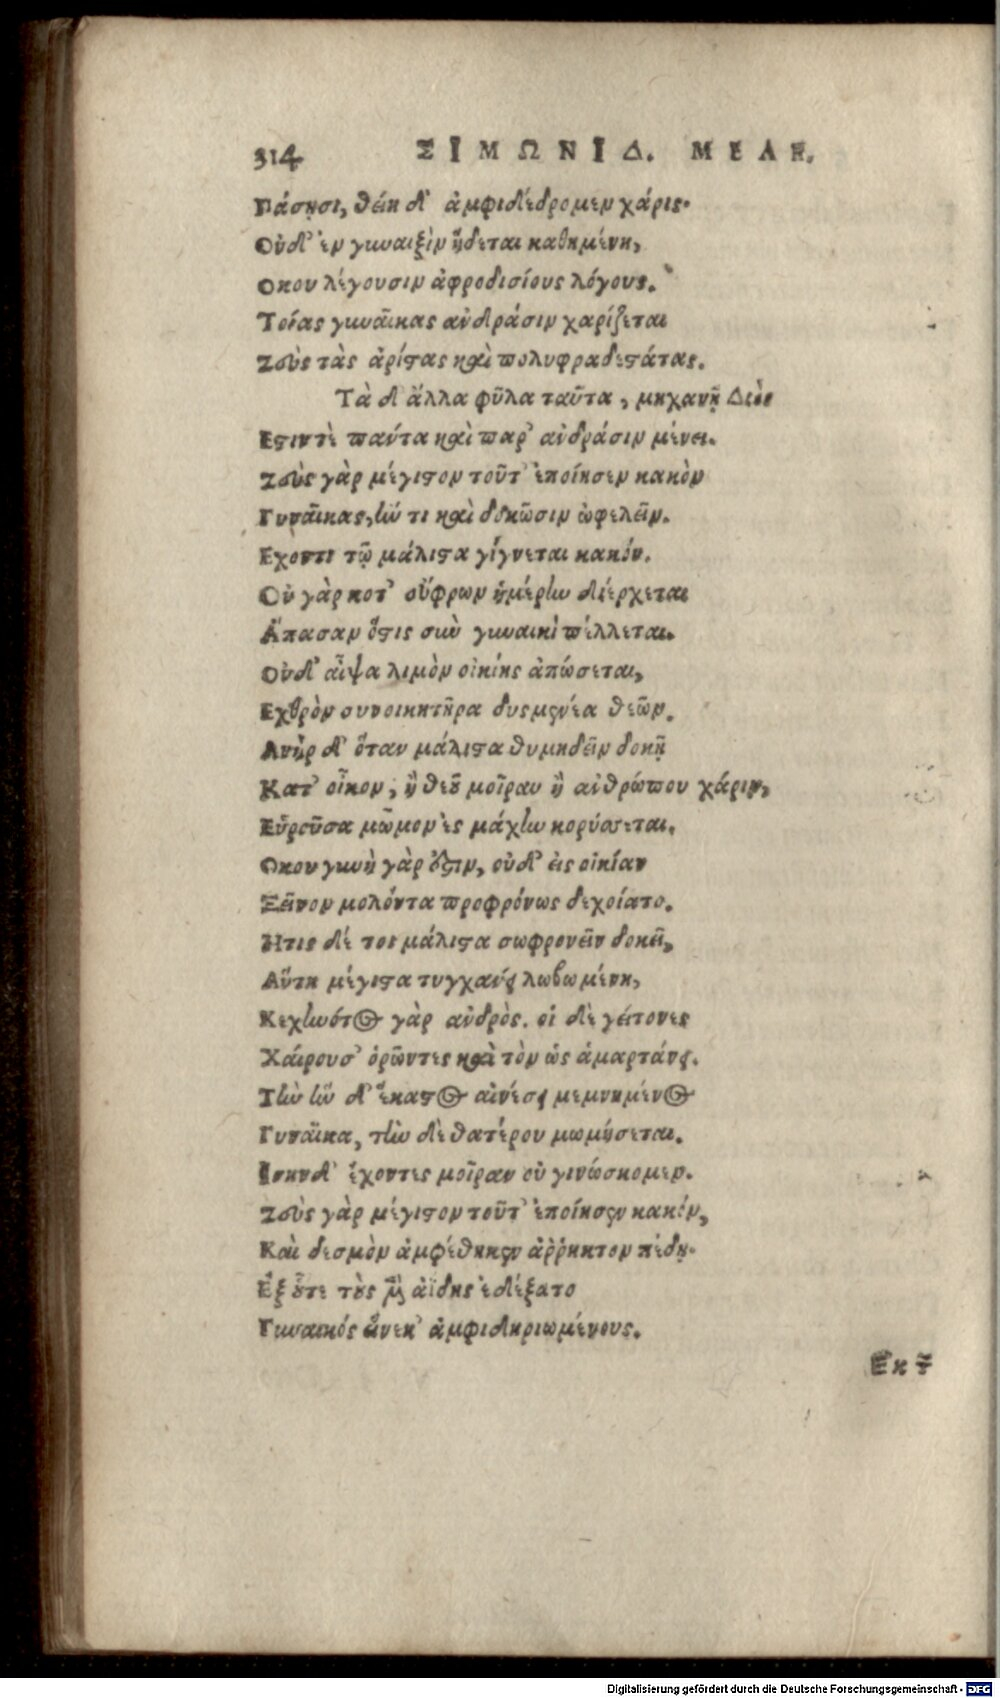 314 ΣΙΜΩΝΙΔ. ΜΕΛΗ.
Πάσῃσι, θείη δ' ἀμφιδέδρομεν χάρις·
Οὐδ' ἐν γυναιξὶν ἥδεται καθημένη,
Οκου λέγουσιν ἀφροδισίους λόγους.
Τοίας γυναῖκας ἀνδράσιν χαρίζεται
Ζεὺς τὰς ἀρίστας καὶ πολυφραδεστάτας.
Τὰ δ' ἄλλα φῦλα ταῦτα, μηχανῇ Διὸς
Εστιν τὲ παντα καὶ παρ' ἀνδράσιν μένει.
Ζεὺς γὰρ μέγιστον τοῦτ' ἐποίησεν κακὸν
Γυναῖκας, ἤν τι καὶ δοκῶσιν ὠφελεῖν.
Εχοντι τῷ μάλιστα γίγνεται κακόν.
Οὐ γὰρ κοτ' εὔφρων ἡμέρην διέρχεται
Ἅπασαν ὅστις σὺν γυναικὶ πέλλεται.
Οὐδ' αἶψα λιμὸν οἰκίης ἀπώσεται,
Εχθρὸν συνοικητῆρα δυσμενέα θεῶν.
Ανὴρ δ' ὅταν μάλιστα θυμηδεῖν δοκῇ
Κατ' οἶκον, ἢ θεοῦ μοῖραν ἢ ἀνθρώπου χάριν,
Εὑροῦσα μῶμον ἐς μάχην κορύσσεται.
Οκου γυνὴ γάρ ἐστιν, οὐδ' ἐις οἰκίαν
Ξεῖνον μολόντα προφρόνως δεχοίατο.
Ητις δέ τοι μάλιστα σωφρονεῖν δοκεῖ,
Αὕτη μέγιστα τυγχάνει λωβωμένη,
Κεχηνότος γὰρ ἀνδρὸς. οἱ δὲ γείτονες
Χαίρουσ' ὁρῶντες καὶ τὸν ὡς ἁμαρτάνει.
Τὴν ἣν δ' ἕκαστος αἰνέσει μεμνημένος
Γυναῖκα, τὴν δὲ θατέρου μωμήσεται.
Ισην δ' ἔχοντες μοῖραν οὐ γινώσκομεν.
Ζεὺς γὰρ μέγιστον τοῦτ' ἐποίησεν κακόν,
Καὶ δεσμὸν ἀμφέθηκεν ἄῤῥηκτον πέδῃ·
Ἐξ οὗτε τοὺς μὲν ἀΐδης ἐδέξατο
Γυναικός εἵνεκ' ἀμφιδηριωμένους.
Εκ τ
Digitalisierung gefördert durch die Deutsche Forschungsgemeinschaft - DFG